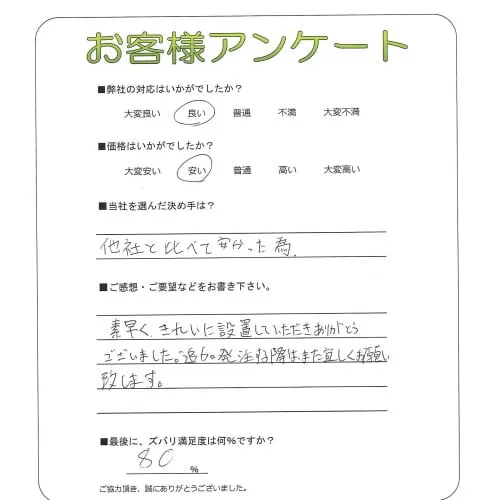 お客様アンケート
■弊社の対応はいかがでしたか？
大変良い 良い 普通 不満 大変不満
■価格はいかがでしたか？
大変安い 安い 普通 高い 大変高い
■当社を選んだ決め手は？
他社と比べて安かった為.
■ご感想・ご要望などをお書き下さい。
素早く、きれいに設置していただきありがとう
ございました。追加発注する際はまた宜しくお願い
致します。
■最後に、ズバリ満足度は何％ですか？
80 ％
ご協力頂き、誠にありがとうございました。